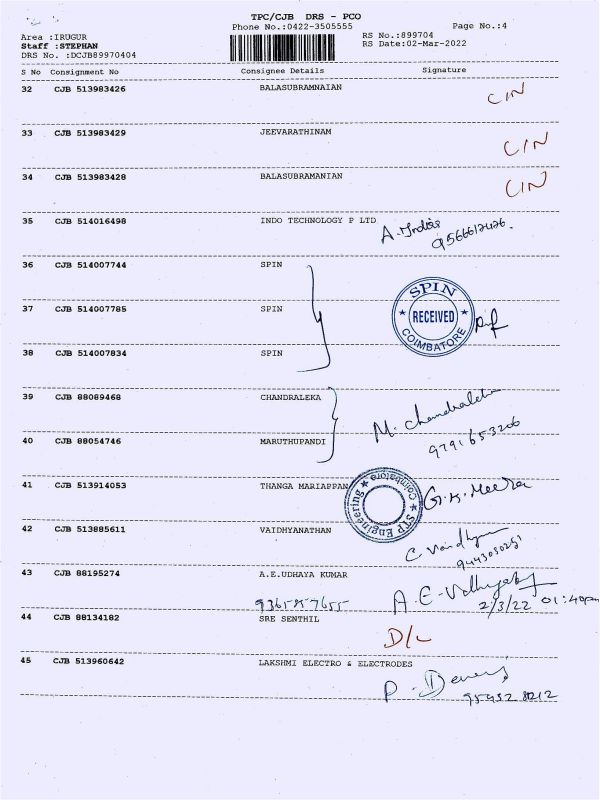 TPC/CJB DRS - PCO
Phone No.:0422-3505555
Page No.:4
Area :IRUGUR
RS No.:899704
Staff :STEPHAN
RS Date:02-Mar-2022
DRS No. :DCJB89970404
S No Consignment No Consignee Details Signature
32 CJB 513983426 BALASUBRAMNAIAN CIN
33 CJB 513983429 JEEVARATHINAM CIN
34 CJB 513983428 BALASUBRAMANIAN CIN
35 CJB 514016498 INDO TECHNOLOGY P LTD
36 CJB 514007744 SPIN
37 CJB 514007785 SPIN
SPIN RECEIVED COIMBATORE
38 CJB 514007834 SPIN
39 CJB 88089468 CHANDRALEKA M. Chandraleka
40 CJB 88054746 MARUTHUPANDI 9791653206
41 CJB 513914053 THANGA MARIAPPAN G.K. Meera
STP Engineering Coimbatore
42 CJB 513885611 VAIDHYANATHAN
43 CJB 88195274 A.E.UDHAYA KUMAR
2/3/22 01:40pm
44 CJB 88134182 SRE SENTHIL D/L
45 CJB 513960642 LAKSHMI ELECTRO & ELECTRODES